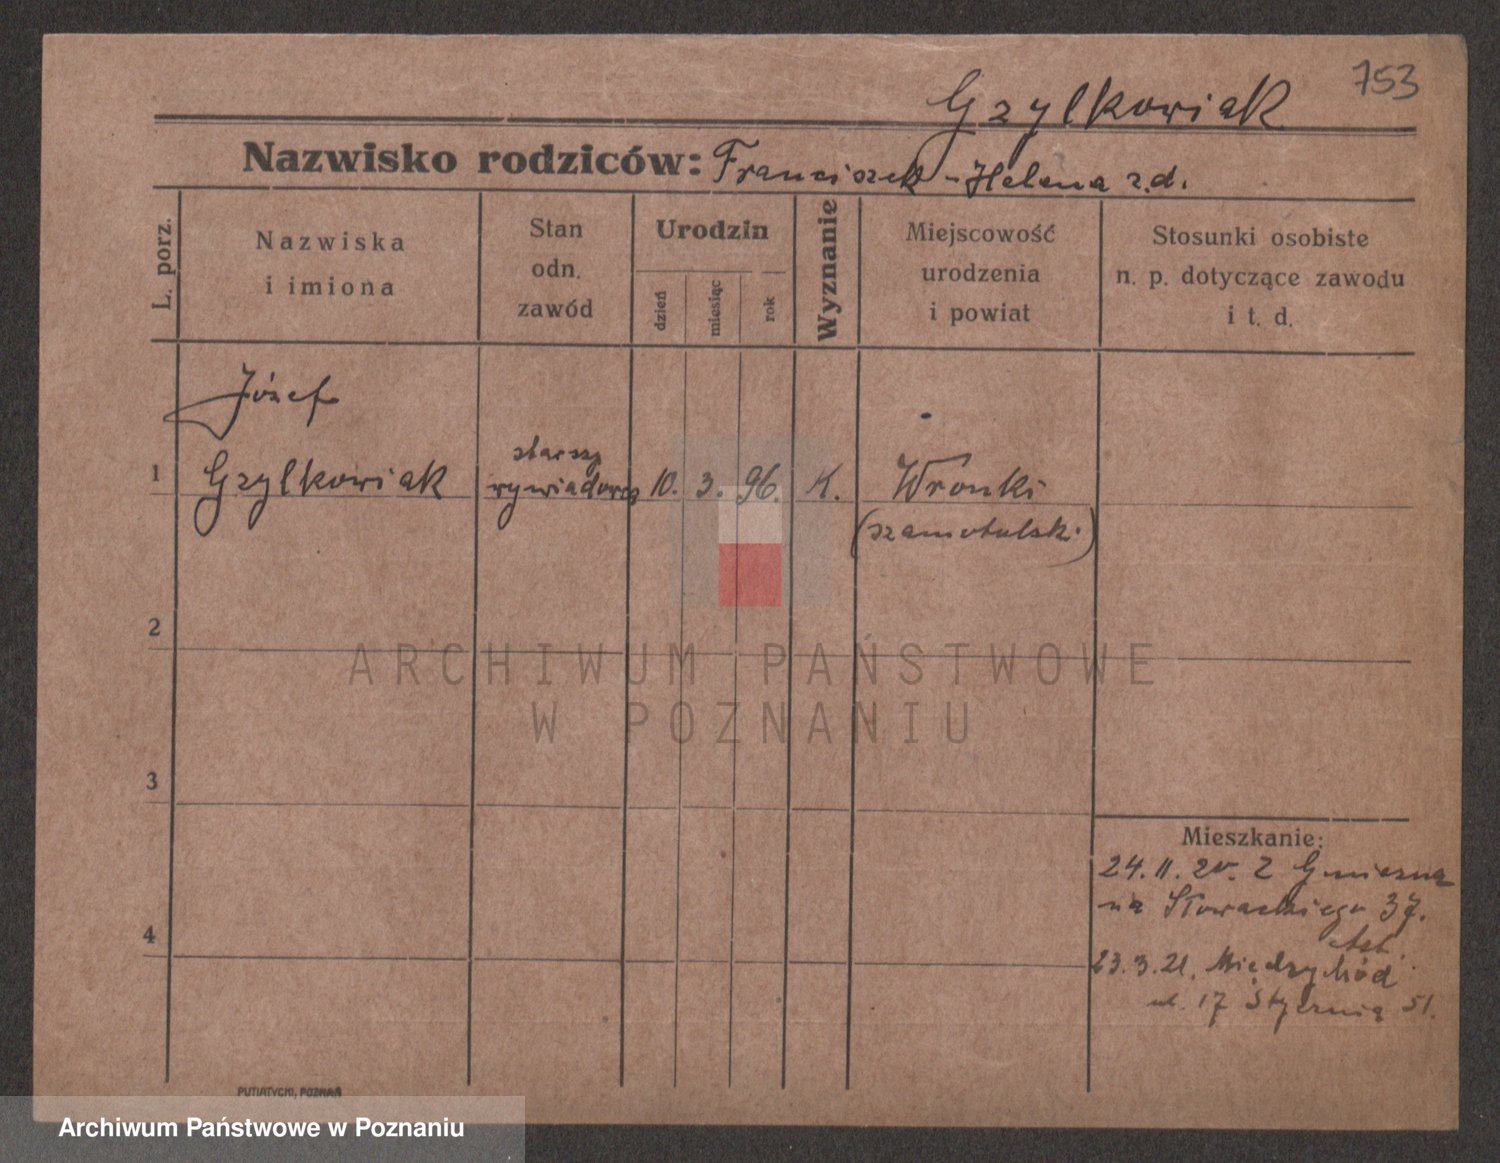 753
Gzylkowiak
Nazwisko rodziców: Franciszek - Helena z.d.
L. porz.
Nazwiska
i imiona
Stan
odn.
zawód
Urodzin
dzień
miesiąc
rok
Wyznanie
Miejscowość
urodzenia
i powiat
Stosunki osobiste
n. p. dotyczące zawodu
i t. d.
1
Józef
Gzylkowiak
starszy
wywiadowca
10. 3. 96. K. Wronki
(szamotulski)
2
3
4
Mieszkanie:
24. 11. 20. Z Gniezna
na Słowackiego 37.
23. 3. 21. Międzychód
ul. 17 Stycznia 51.
PUTIATYCKI, POZNAŃ
ARCHIWUM PAŃSTWOWE
W POZNANIU
Archiwum Państwowe w Poznaniu